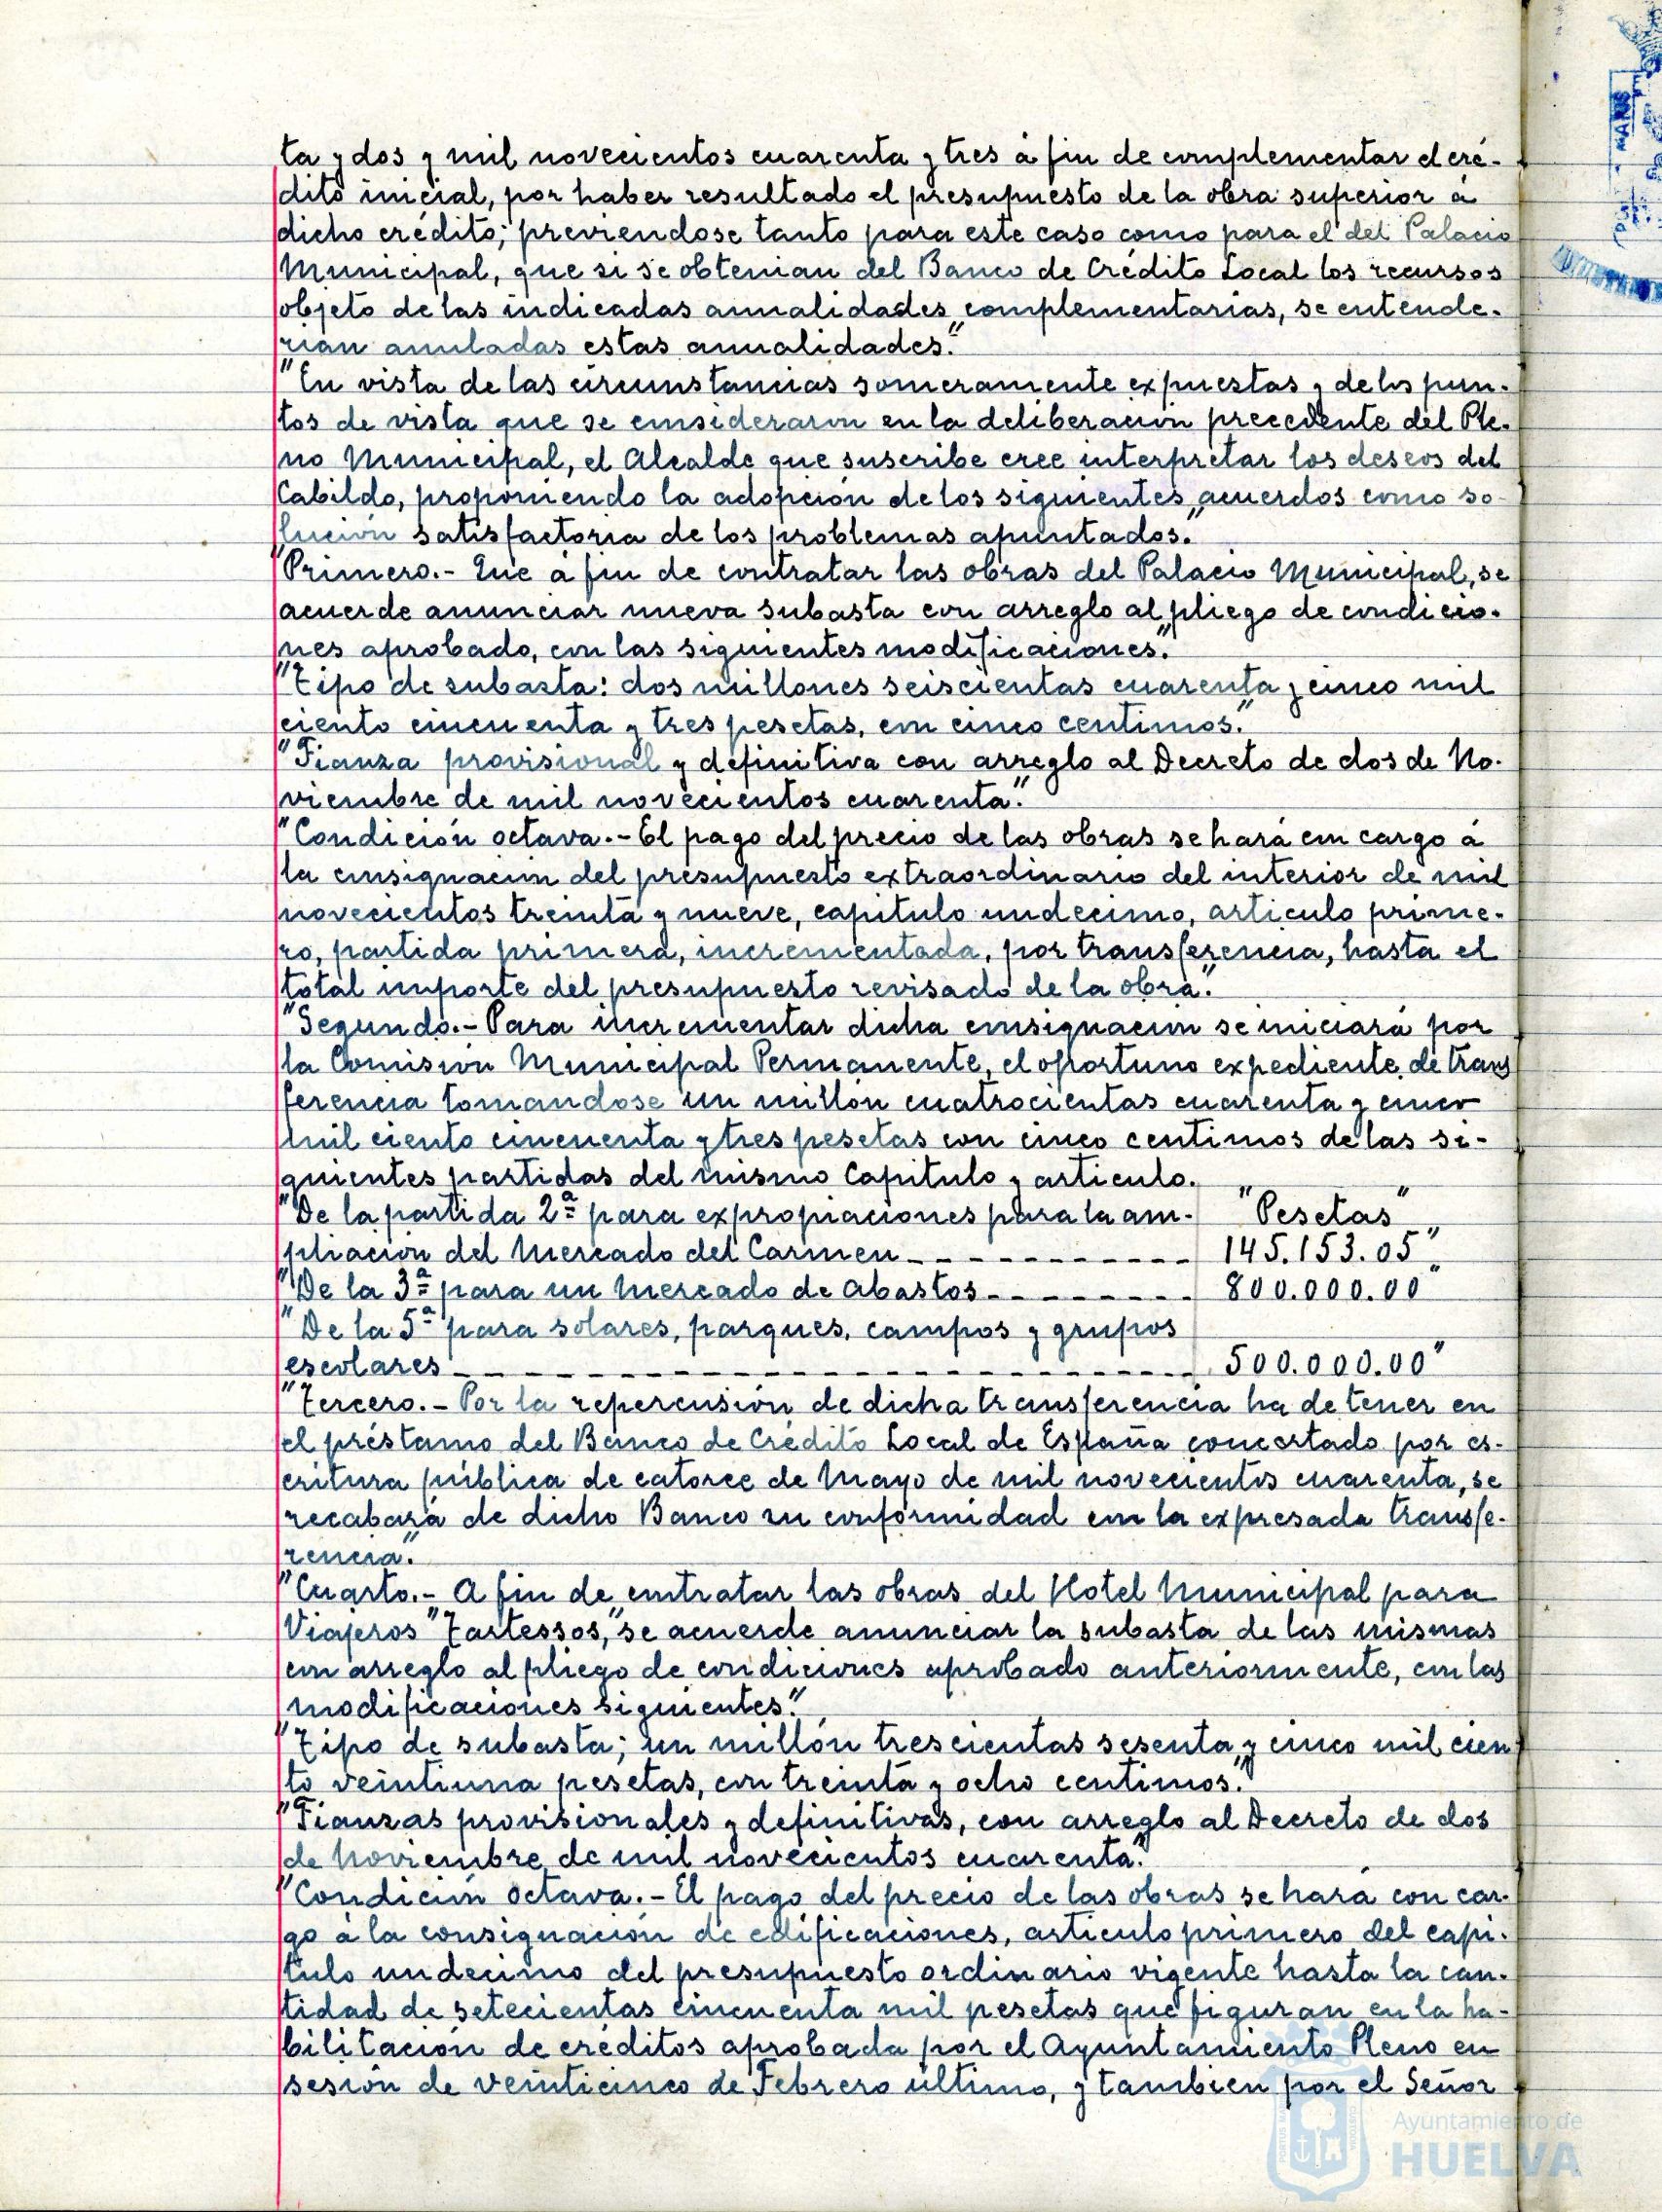 ta y dos y mil novecientos cuarenta y tres á fin de complementar el cré-
dito inicial, por haber resultado el presupuesto de la obra superior á
dicho crédito; previendose tanto para este caso como para el del Palacio
Municipal, que si se obtenian del Banco de Crédito Local los recursos
objeto de las indicadas anualidades complementarias, se entende-
rian anuladas estas anualidades."
"En vista de las circunstancias someramente expuestas y de los pun-
tos de vista que se consideraron en la deliberación precedente del Ple-
no Municipal, el Alcalde que suscribe cree interpretar los deseos del
Cabildo, proponiendo la adopción de los siguientes acuerdos como so-
lución satisfactoria de los problemas apuntados."
"Primero.- Que á fin de contratar las obras del Palacio Municipal, se
acuerde anunciar nueva subasta con arreglo al pliego de condicio-
nes aprobado, con las siguientes modificaciones."
"Tipo de subasta: dos millones seiscientas cuarenta y cinco mil
ciento cincuenta y tres pesetas, con cinco centimos."
"Fianza provisional y definitiva con arreglo al Decreto de dos de No-
viembre de mil novecientos cuarenta."
"Condición octava.- El pago del precio de las obras se hará con cargo á
la consignación del presupuesto extraordinario del interior de mil
novecientos treinta y nueve, capitulo undecimo, articulo prime-
ro, partida primera, incrementada, por transferencia, hasta el
total importe del presupuesto revisado de la obra."
"Segundo.- Para incrementar dicha consignación se iniciará por
la Comisión Municipal Permanente, el oportuno expediente de trans
ferencia tomandose un millón cuatrocientas cuarenta y cinco
mil ciento cincuenta y tres pesetas con cinco centimos de las si-
guientes partidas del mismo Capitulo y articulo.
"De la partida 2ª para expropiaciones para la am- "Pesetas"
pliación del Mercado del Carmen ----------- 145.153.05"
"De la 3ª para un Mercado de Abastos -------- 800.000.00"
"De la 5ª para solares, parques, campos y grupos
escolares ---------------------- 500.000.00"
"Tercero.- Por la repercusión de dicha transferencia ha de tener en
el préstamo del Banco de Crédito Local de España concertado por es-
critura pública de catorce de Mayo de mil novecientos cuarenta, se
recabará de dicho Banco su conformidad con la expresada transfe-
rencia."
"Cuarto.- A fin de contratar las obras del Hotel Municipal para
Viajeros "Tartessos," se acuerde anunciar la subasta de las mismas
con arreglo al pliego de condiciones aprobado anteriormente, con las
modificaciones siguientes."
"Tipo de subasta; un millón trescientas sesenta y cinco mil cien
to veintiuna pesetas, con treinta y ocho centimos."
"Fianzas provisionales y definitivas, con arreglo al Decreto de dos
de Noviembre de mil novecientos cuarenta."
"Condición octava.- El pago del precio de las obras se hará con car-
go á la consignación de edificaciones, articulo primero del capi-
tulo undecimo del presupuesto ordinario vigente hasta la can-
tidad de setecientas cincuenta mil pesetas que figuran en la ha-
bilitación de créditos aprobada por el Ayuntamiento Pleno en
sesión de veinticinco de Febrero último, y tambien por el Señor
Ayuntamiento de
HUELVA